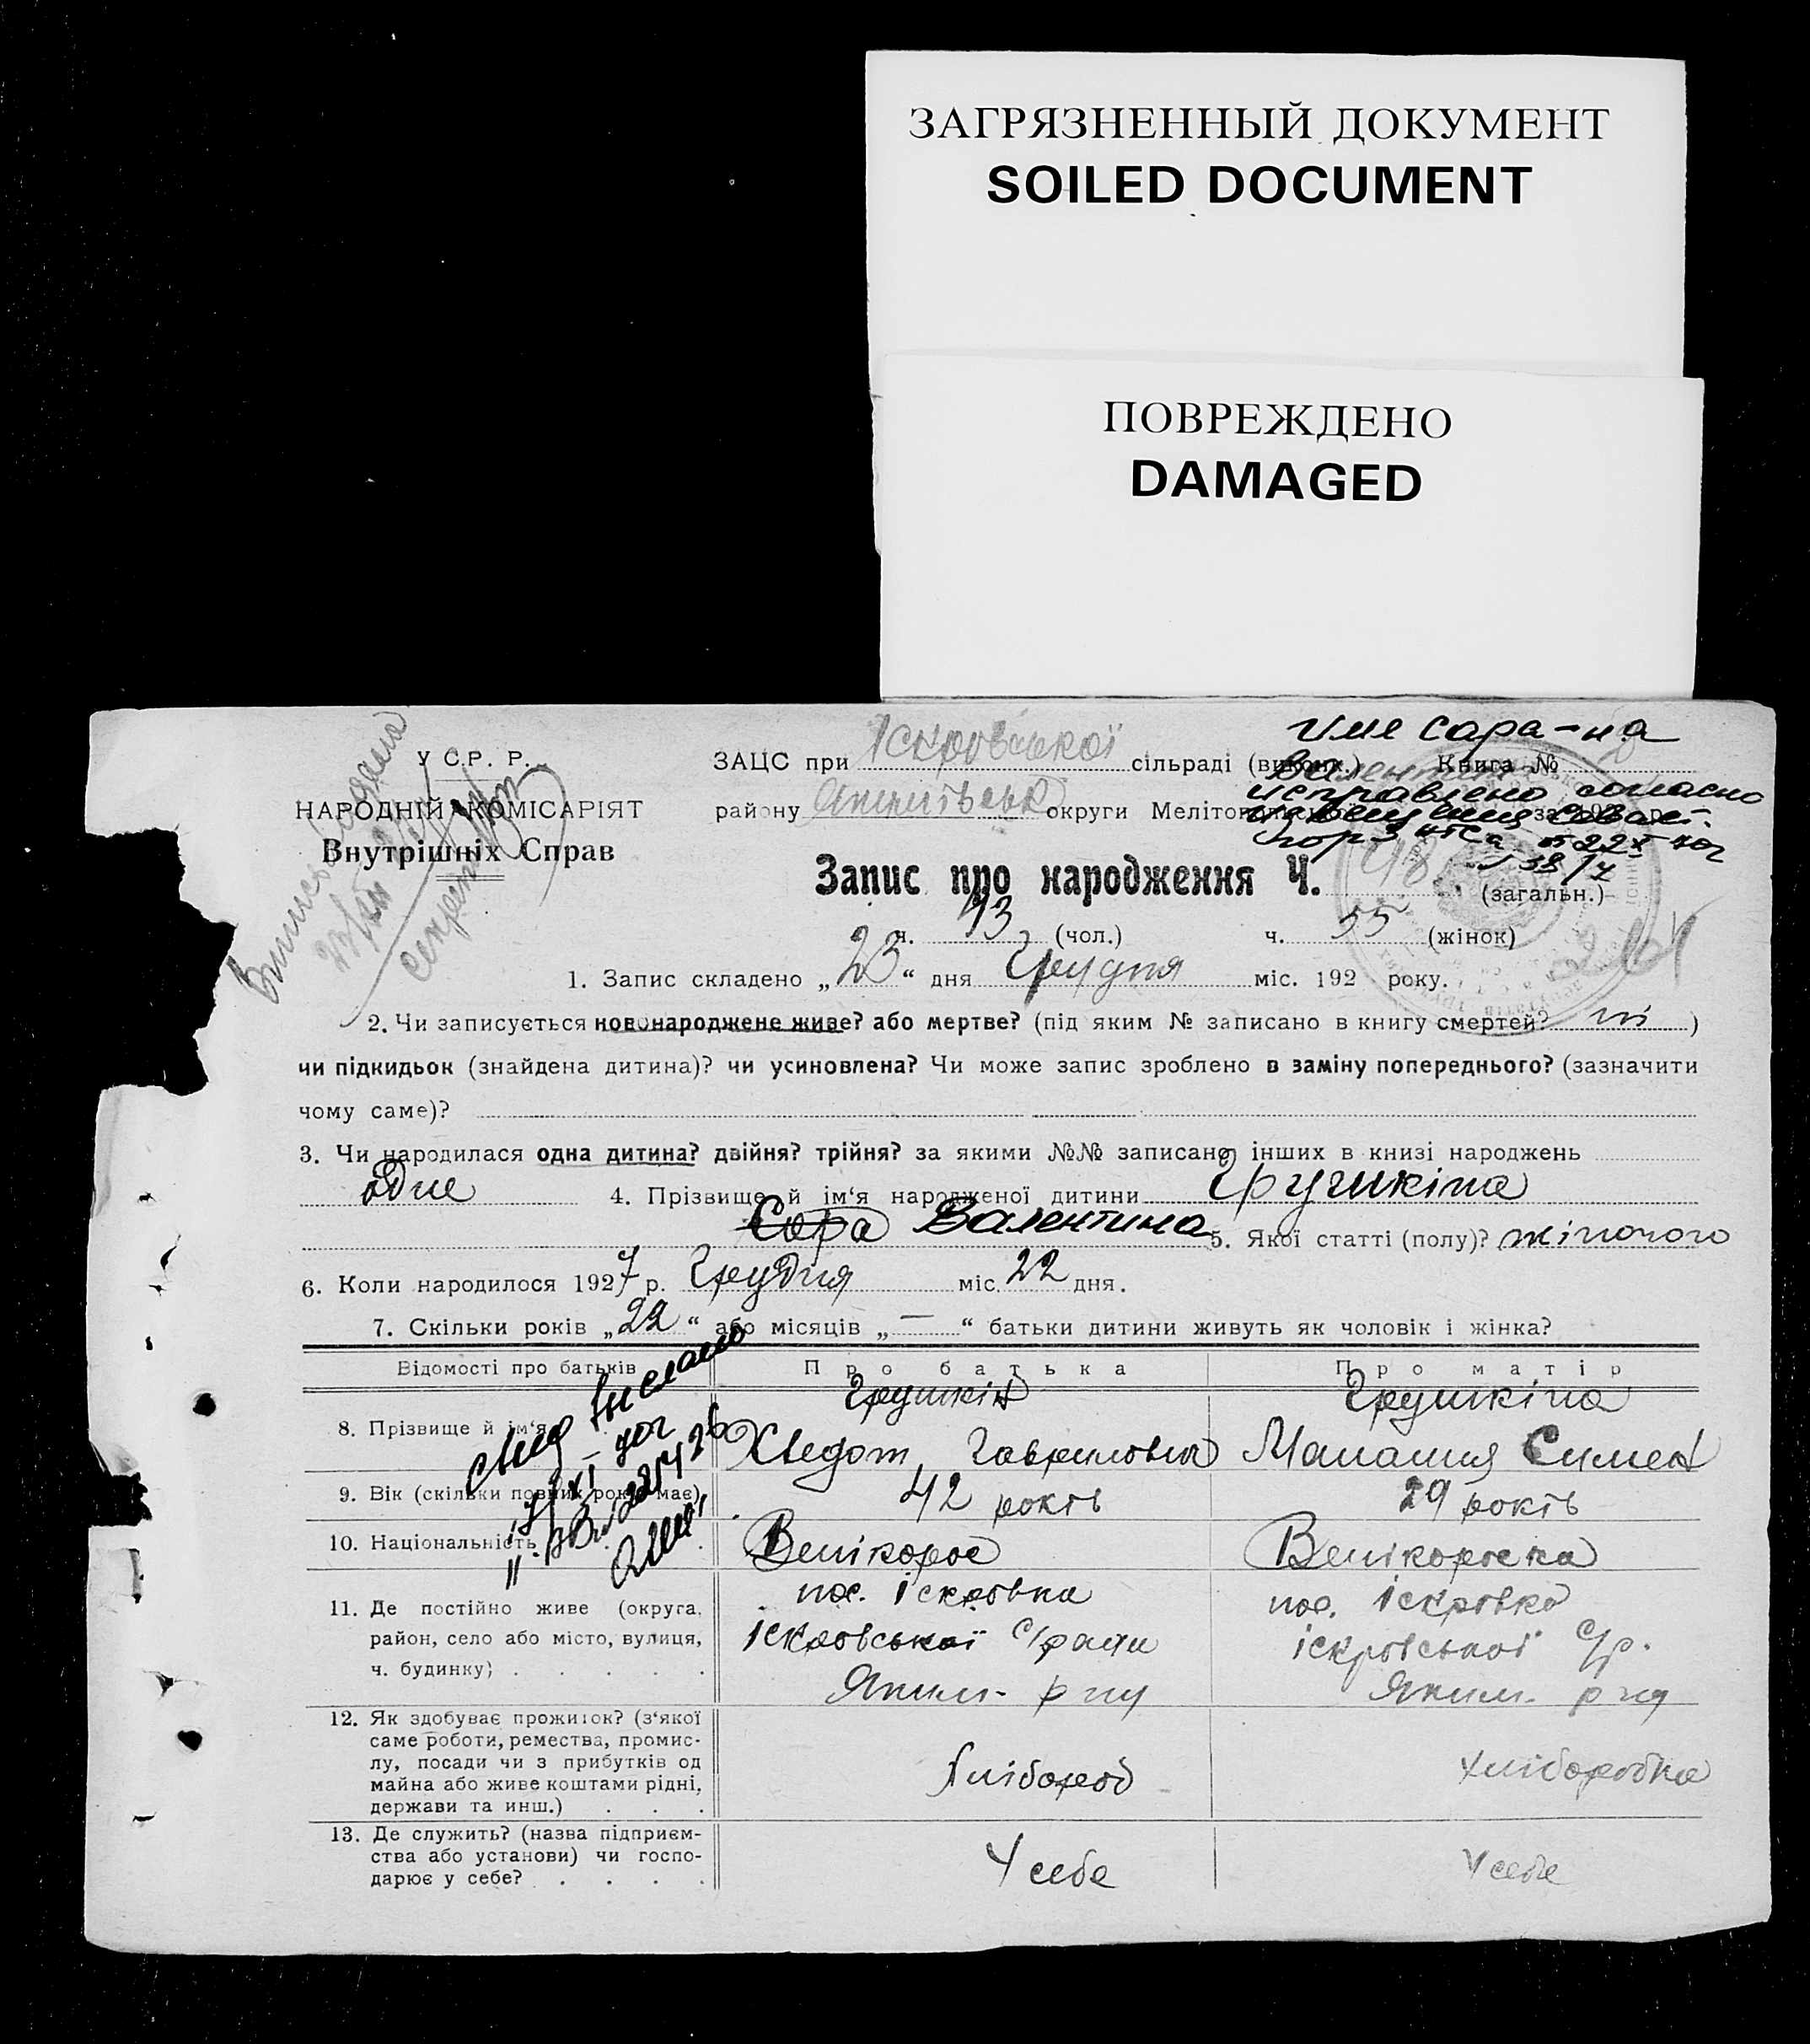 ЗАГРЯЗНЕННЫЙ ДОКУМЕНТ
SOILED DOCUMENT
ПОВРЕЖДЕНО
DAMAGED
имя Сара-на
Валентина
исправлено согласно
У С.Р. Р.
ЗАЦС при Іскровської сільраді (виконк.) Книга №
НАРОДНІЙ КОМІСАРІЯТ
району округи Мелітопольської
Внутрішніх Справ
Запис про народження Ч. 98 (загальн.)
ч. 43 (чол.) ч. 55 (жінок)
1. Запис складено „23“ дня Грудня міс. 192 року.
2. Чи записується новонароджене живе? або мертве? (під яким № записано в книгу смертей? ні)
чи підкидьок (знайдена дитина)? чи усиновлена? Чи може запис зроблено в заміну попереднього? (зазначити
чому саме)?
3. Чи народилася одна дитина? двійня? трійня? за якими №№ записано інших в книзі народжень
одне 4. Прізвище й ім‘я народженої дитини Грушкіна
Сара Валентина 5. Якої статті (полу)? жіночого
6. Коли народилося 1927 р. Грудня міс. 22 дня.
7. Скільки років „22“ або місяців „—“ батьки дитини живуть як чоловік і жінка?
Відомості про батьків Про батька Про матір
8. Прізвище й ім‘я Грушкін Грушкіна
Хведот Гаврилович Малания Симен
9. Вік (скільки повних років має) 42 років 29 років
10. Національність Велікорос Велікороска
11. Де постійно живе (округа, район, село або місто, вулиця, ч. будинку)
пос. Іскровка пос. Іскровка
Іскровської С/ради іскровської С/р.
Яким. р-ну Яким. р-ну
12. Як здобуває прожиток? (з‘якої
саме роботи, ремества, промис-
лу, посади чи з прибутків од
майна або живе коштами рідні,
держави та инш.)
Хлібороб хліборобка
13. Де служить? (назва підприєм-
ства або установи) чи госпо-
дарює у себе?
У себе У себе